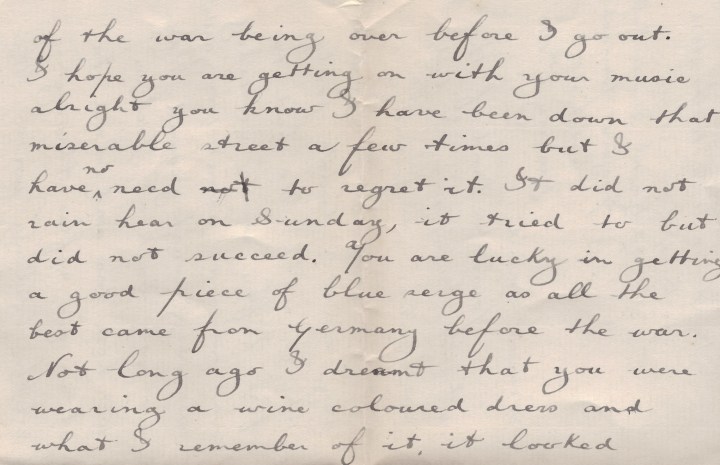 of the war being over before I go out.
I hope you are getting on with your music
alright you know I have been down that
miserable street a few times but I
have no need not to regret it. It did not
rain hear on Sunday, it tried to but
did not succeed. You are lucky in getting
a good piece of blue serge as all the
best came from Germany before the war.
Not long ago I dreamt that you were
wearing a wine coloured dress and
what I remember of it, it looked